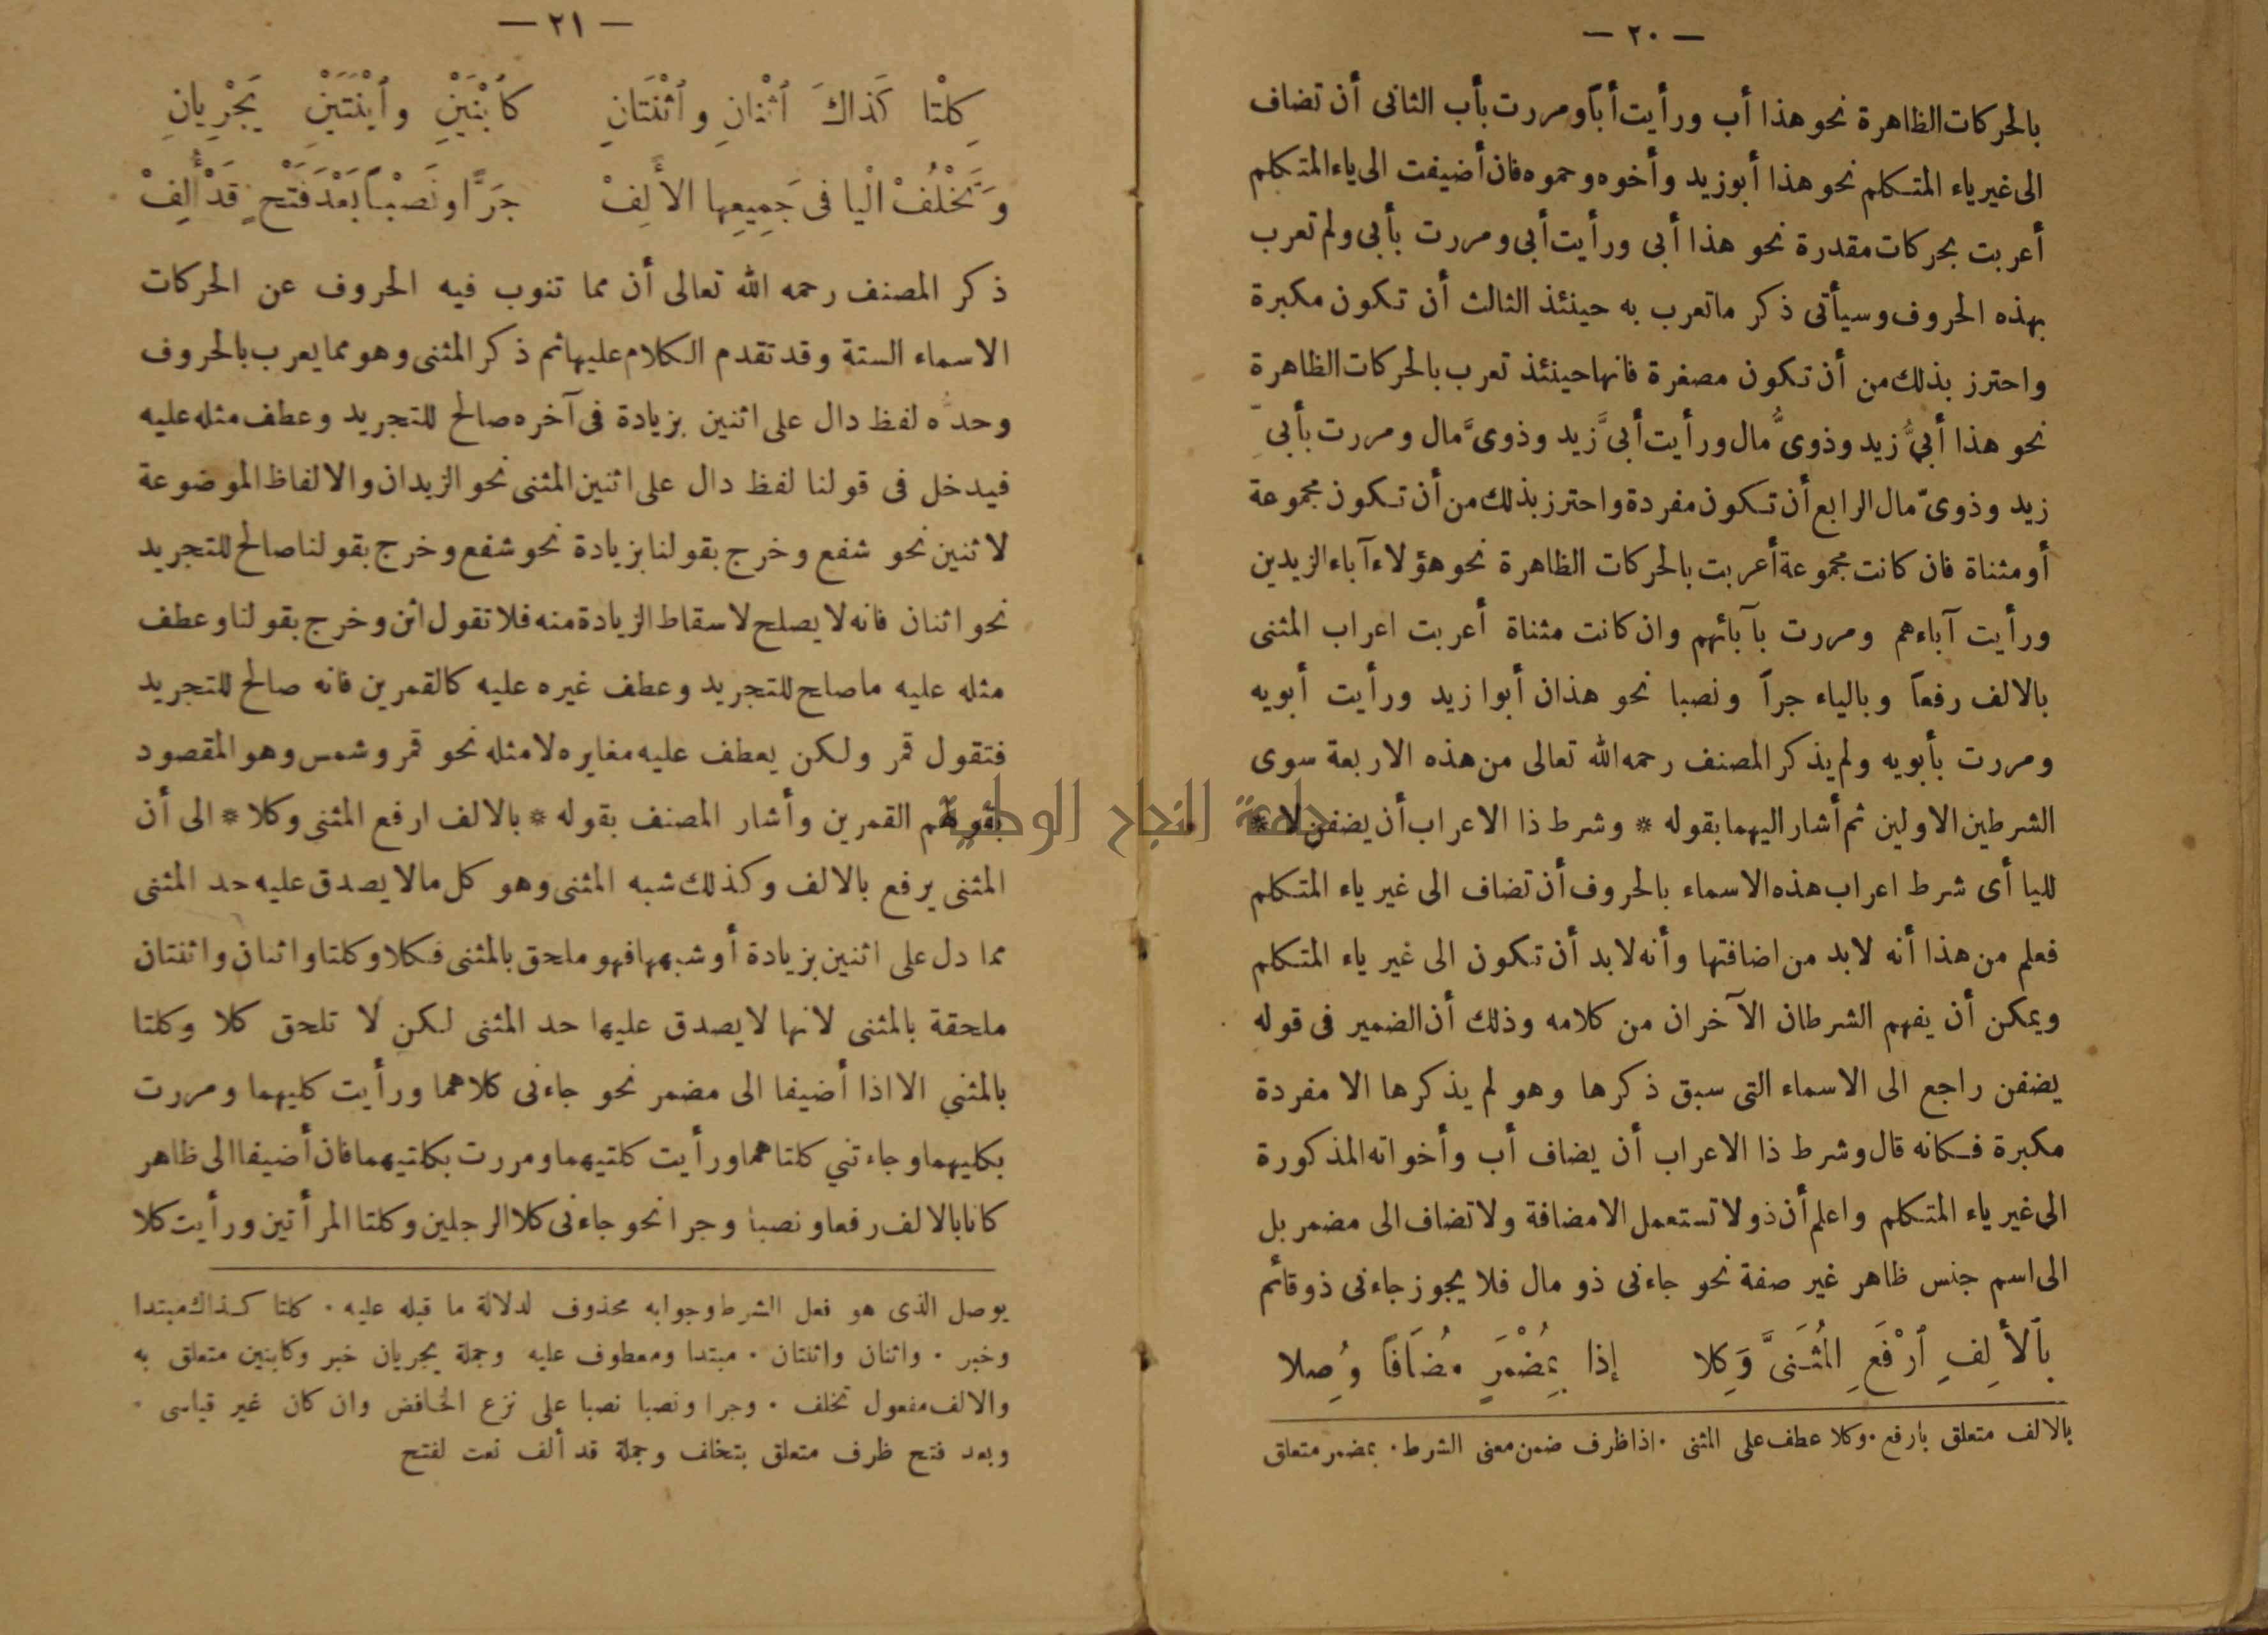 — ٢٠ —
بالحركات الظاهرة نحو هذا أب ورأيت أباً ومررت بأب الثانى أن تضاف
الى غير ياء المتكلم نحو هذا أبو زيد وأخوه وحموه فان أضيفت الى ياء المتكلم
أعربت بحركات مقدرة نحو هذا أبى ورأيت أبى ومررت بأبى ولم تعرب
بهذه الحروف وسيأتى ذكر ما تعرب به حينئذ الثالث أن تكون مكبرة
واحترز بذلك من أن تكون مصغرة فانها حينئذ تعرب بالحركات الظاهرة
نحو هذا أبىُّ زيد وذوىُّ مال ورأيت أبىَّ زيد وذوىَّ مال ومررت بأبىِّ
زيد وذوىّ مال الرابع أن تكون مفردة واحترز بذلك من أن تكون مجموعة
أو مثناة فان كانت مجموعة أعربت بالحركات الظاهرة نحو هؤلاء آباء الزيدين
ورأيت آباءهم ومررت بآبائهم وان كانت مثناة أعربت اعراب المثنى
بالالف رفعاً وبالياء جراً ونصبا نحو هذان أبوا زيد ورأيت أبويه
ومررت بأبويه ولم يذكر المصنف رحمه الله تعالى من هذه الاربعة سوى
الشرطين الاولين ثم أشار اليهما بقوله * وشرط ذا الاعراب أن يضفن لا *
لليا أى شرط اعراب هذه الاسماء بالحروف أن تضاف الى غير ياء المتكلم
فعلم من هذا أنه لابد من اضافتها وأنه لابد أن تكون الى غير ياء المتكلم
ويمكن أن يفهم الشرطان الآخران من كلامه وذلك أن الضمير فى قوله
يضفن راجع الى الاسماء التى سبق ذكرها وهو لم يذكرها الا مفردة
مكبرة فكانه قال وشرط ذا الاعراب أن يضاف أب وأخواته المذكورة
الى غير ياء المتكلم واعلم أن ذو لا تستعمل الا مضافة ولا تضاف الى مضمر بل
الى اسم جنس ظاهر غير صفة نحو جاءنى ذو مال فلا يجوز جاءنى ذو قائم
بِٱلأَلِفِ ٱرْفَعِ المُثَنَّى وَكِلا إذا بِمُضْمَرٍ مُضَافاً وُصِلا
بالالف متعلق بارفع . وكلا عطف على المثنى . اذا ظرف ضمن معنى الشرط . بمضمر متعلق
— ٢١ —
كِلْتا كَذاكَ ٱثْنانِ وٱثْنَتَانِ كٱبْنَيْنِ وٱبْنَتَيْنِ يَجْرِيانِ
وَتَخْلُفُ الْيا فى جَمِيعِها الأَلِفْ جَرًّا ونَصْباً بَعْدَ فَتْحٍ قَدْ أُلِفْ
ذكر المصنف رحمه الله تعالى أن مما تنوب فيه الحروف عن الحركات
الاسماء الستة وقد تقدم الكلام عليها ثم ذكر المثنى وهو مما يعرب بالحروف
وحدُّه لفظ دال على اثنين بزيادة فى آخره صالح للتجريد وعطف مثله عليه
فيدخل فى قولنا لفظ دال على اثنين المثنى نحو الزيدان والالفاظ الموضوعة
لاثنين نحو شفع وخرج بقولنا بزيادة نحو شفع وخرج بقولنا صالح للتجريد
نحو اثنان فانه لا يصلح لاسقاط الزيادة منه فلا تقول اثن وخرج بقولنا وعطف
مثله عليه ما صلح للتجريد وعطف غيره عليه كالقمرين فانه صالح للتجريد
فتقول قمر ولكن يعطف عليه مغايره لا مثله نحو قمر وشمس وهو المقصود
بقولهم القمرين وأشار المصنف بقوله * بالالف ارفع المثنى وكلا * الى أن
المثنى يرفع بالالف وكذلك شبه المثنى وهو كل ما لا يصدق عليه حد المثنى
مما دل على اثنين بزيادة أو شبهها فهو ملحق بالمثنى فكلا وكلتا واثنان واثنتان
ملحقة بالمثنى لانها لا يصدق عليها حد المثنى لكن لا تلحق كلا وكلتا
بالمثنى الا اذا أضيفا الى مضمر نحو جاءنى كلاهما ورأيت كليهما ومررت
بكليهما وجاءتني كلتاهما ورأيت كلتيهما ومررت بكلتيهما فان أضيفا الى ظاهر
كانا بالالف رفعا ونصبا وجرا نحو جاءنى كلا الرجلين وكلتا المرأتين ورأيت كلا
يوصل الذى هو فعل الشرط وجوابه محذوف لدلالة ما قبله عليه . كلتا كذاك مبتدا
وخبر . واثنان واثنتان . مبتدا ومعطوف عليه وجملة يجريان خبر وكابنين متعلق به
والالف مفعول تخلف . وجرا ونصبا نصبا على نزع الخافض وان كان غير قياسى .
وبعد فتح ظرف متعلق بتخلف وجملة قد ألف نعت لفتح
جامعة النجاح الوطنية